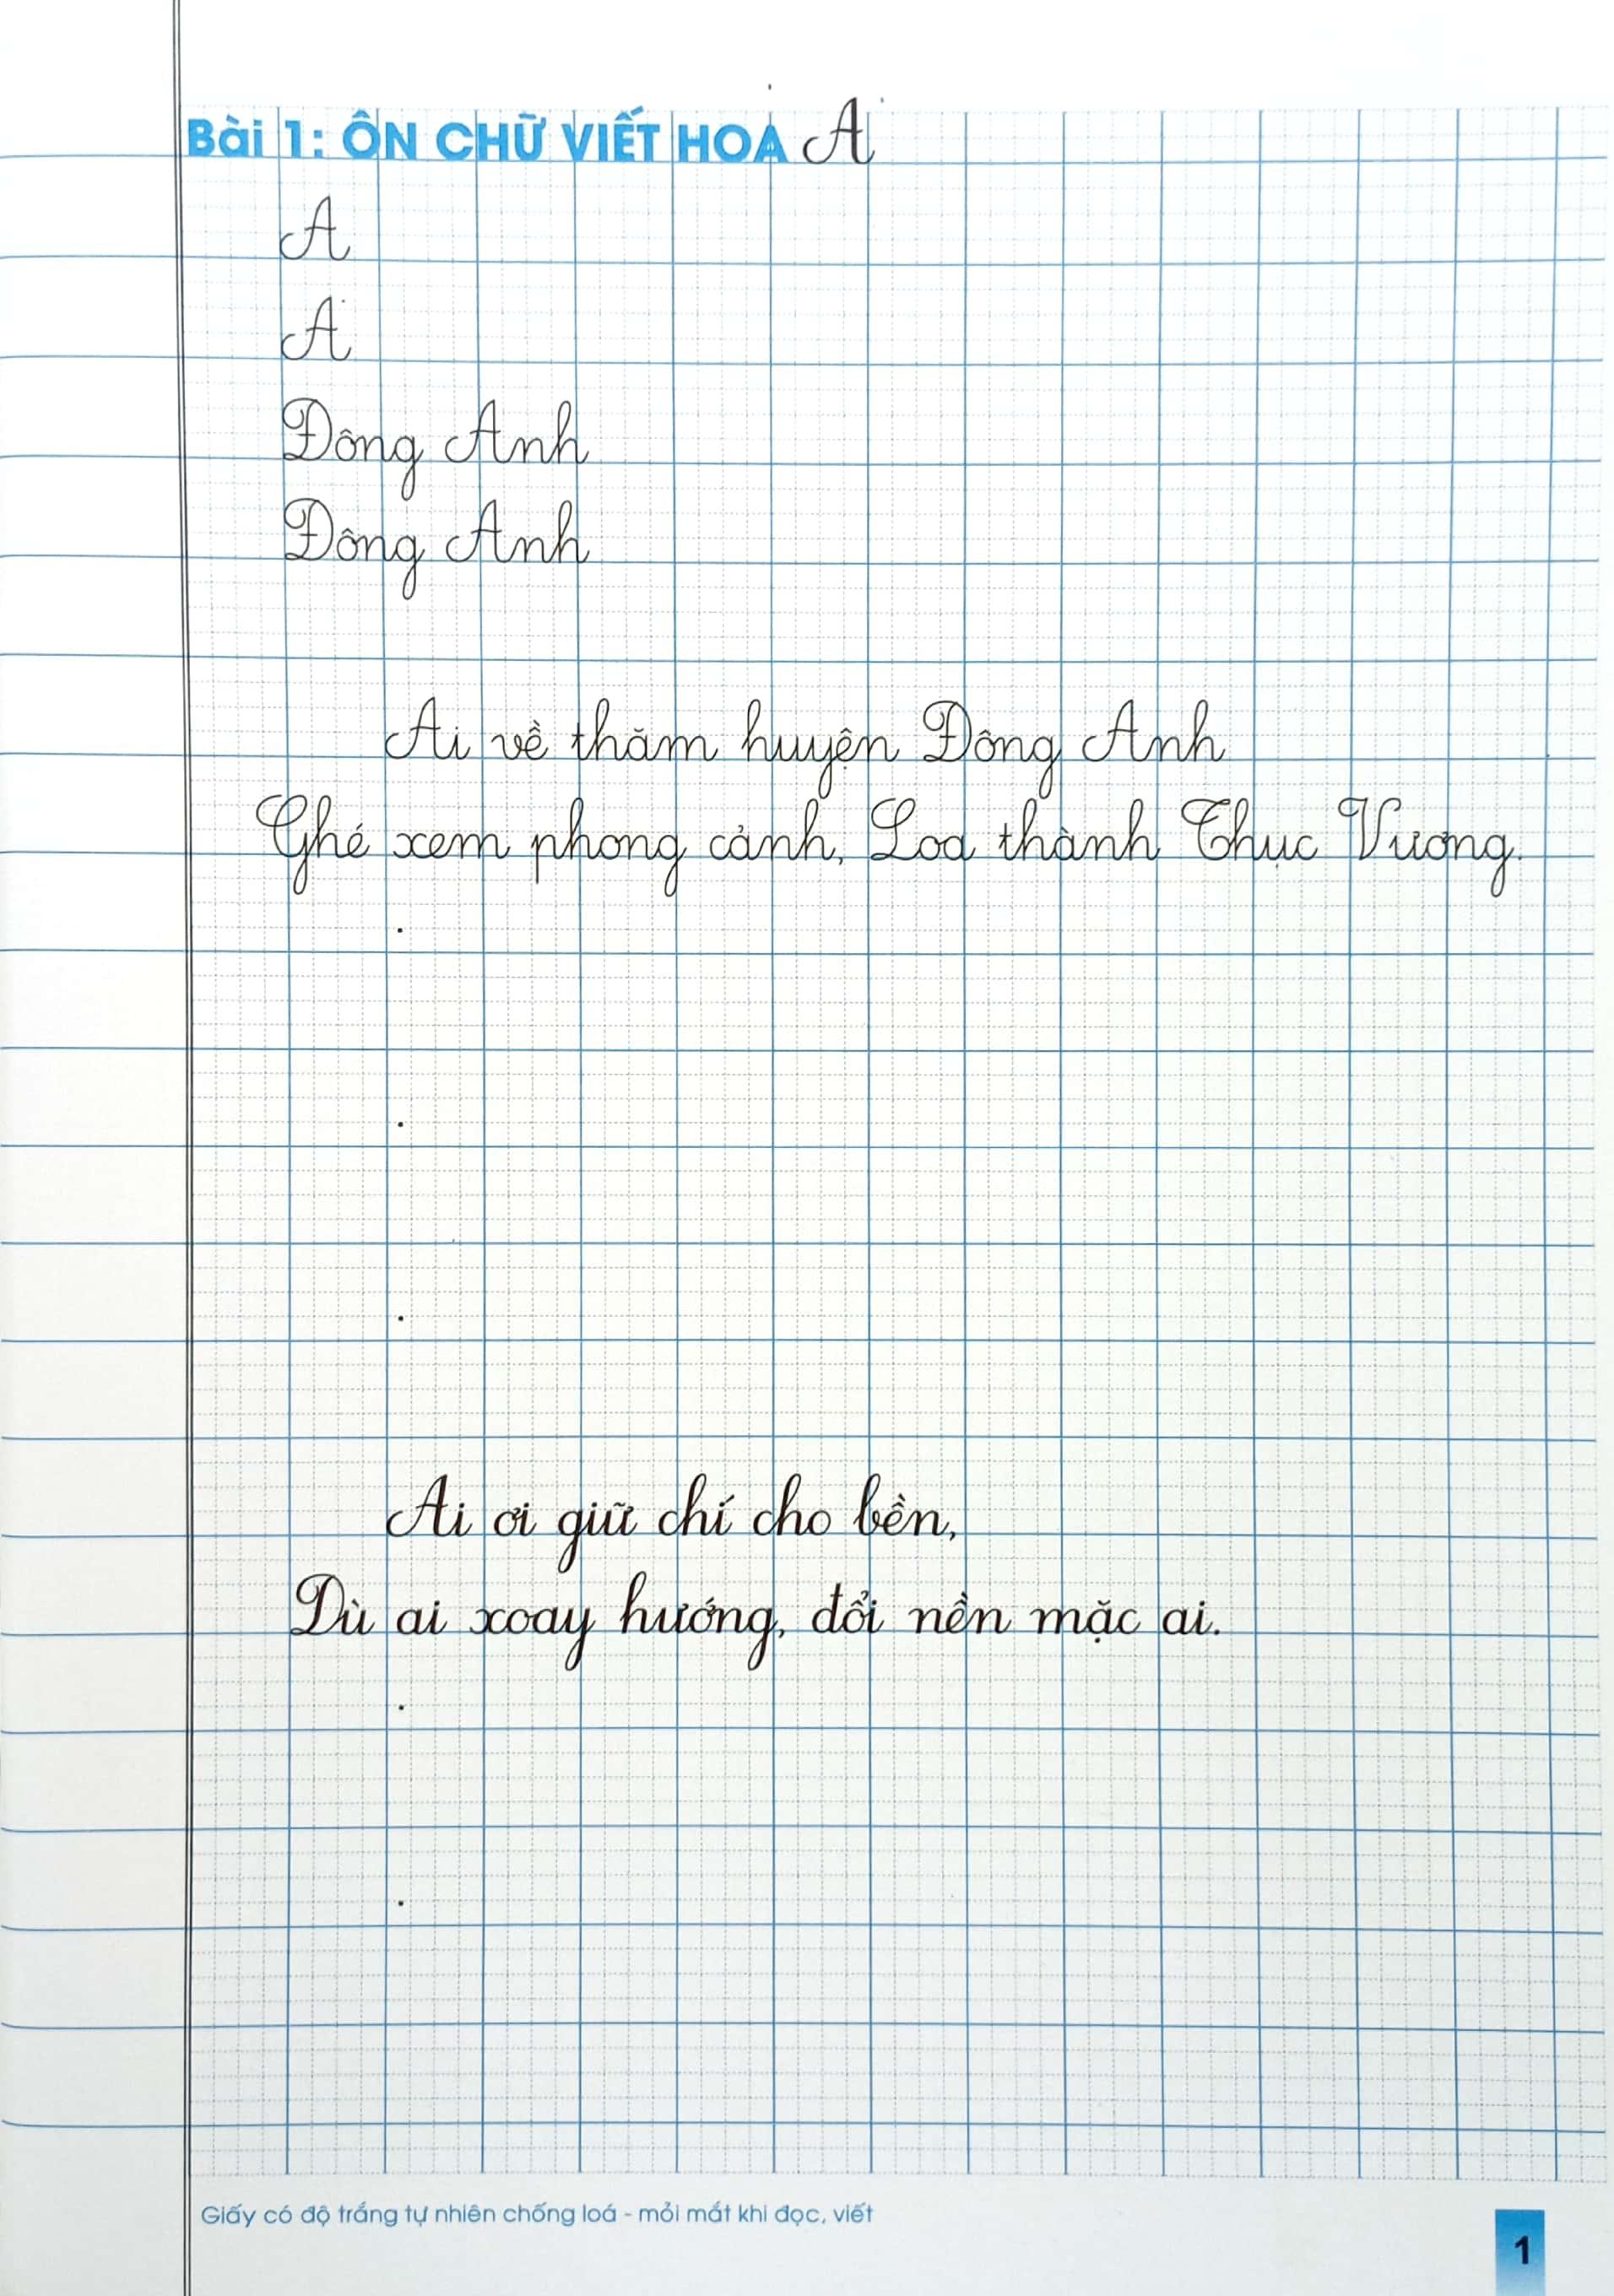 Bài 1: ÔN CHỮ VIẾT HOA A
A
A
Đông Anh
Đông Anh
Ai về thăm huyện Đông Anh
Ghé xem phong cảnh, Loa thành Thục Vương.
.
.
.
Ai ơi giữ chí cho bền,
Dù ai xoay hướng, đổi nền mặc ai.
.
.
Giấy có độ trắng tự nhiên chống loá - mỏi mắt khi đọc, viết
1